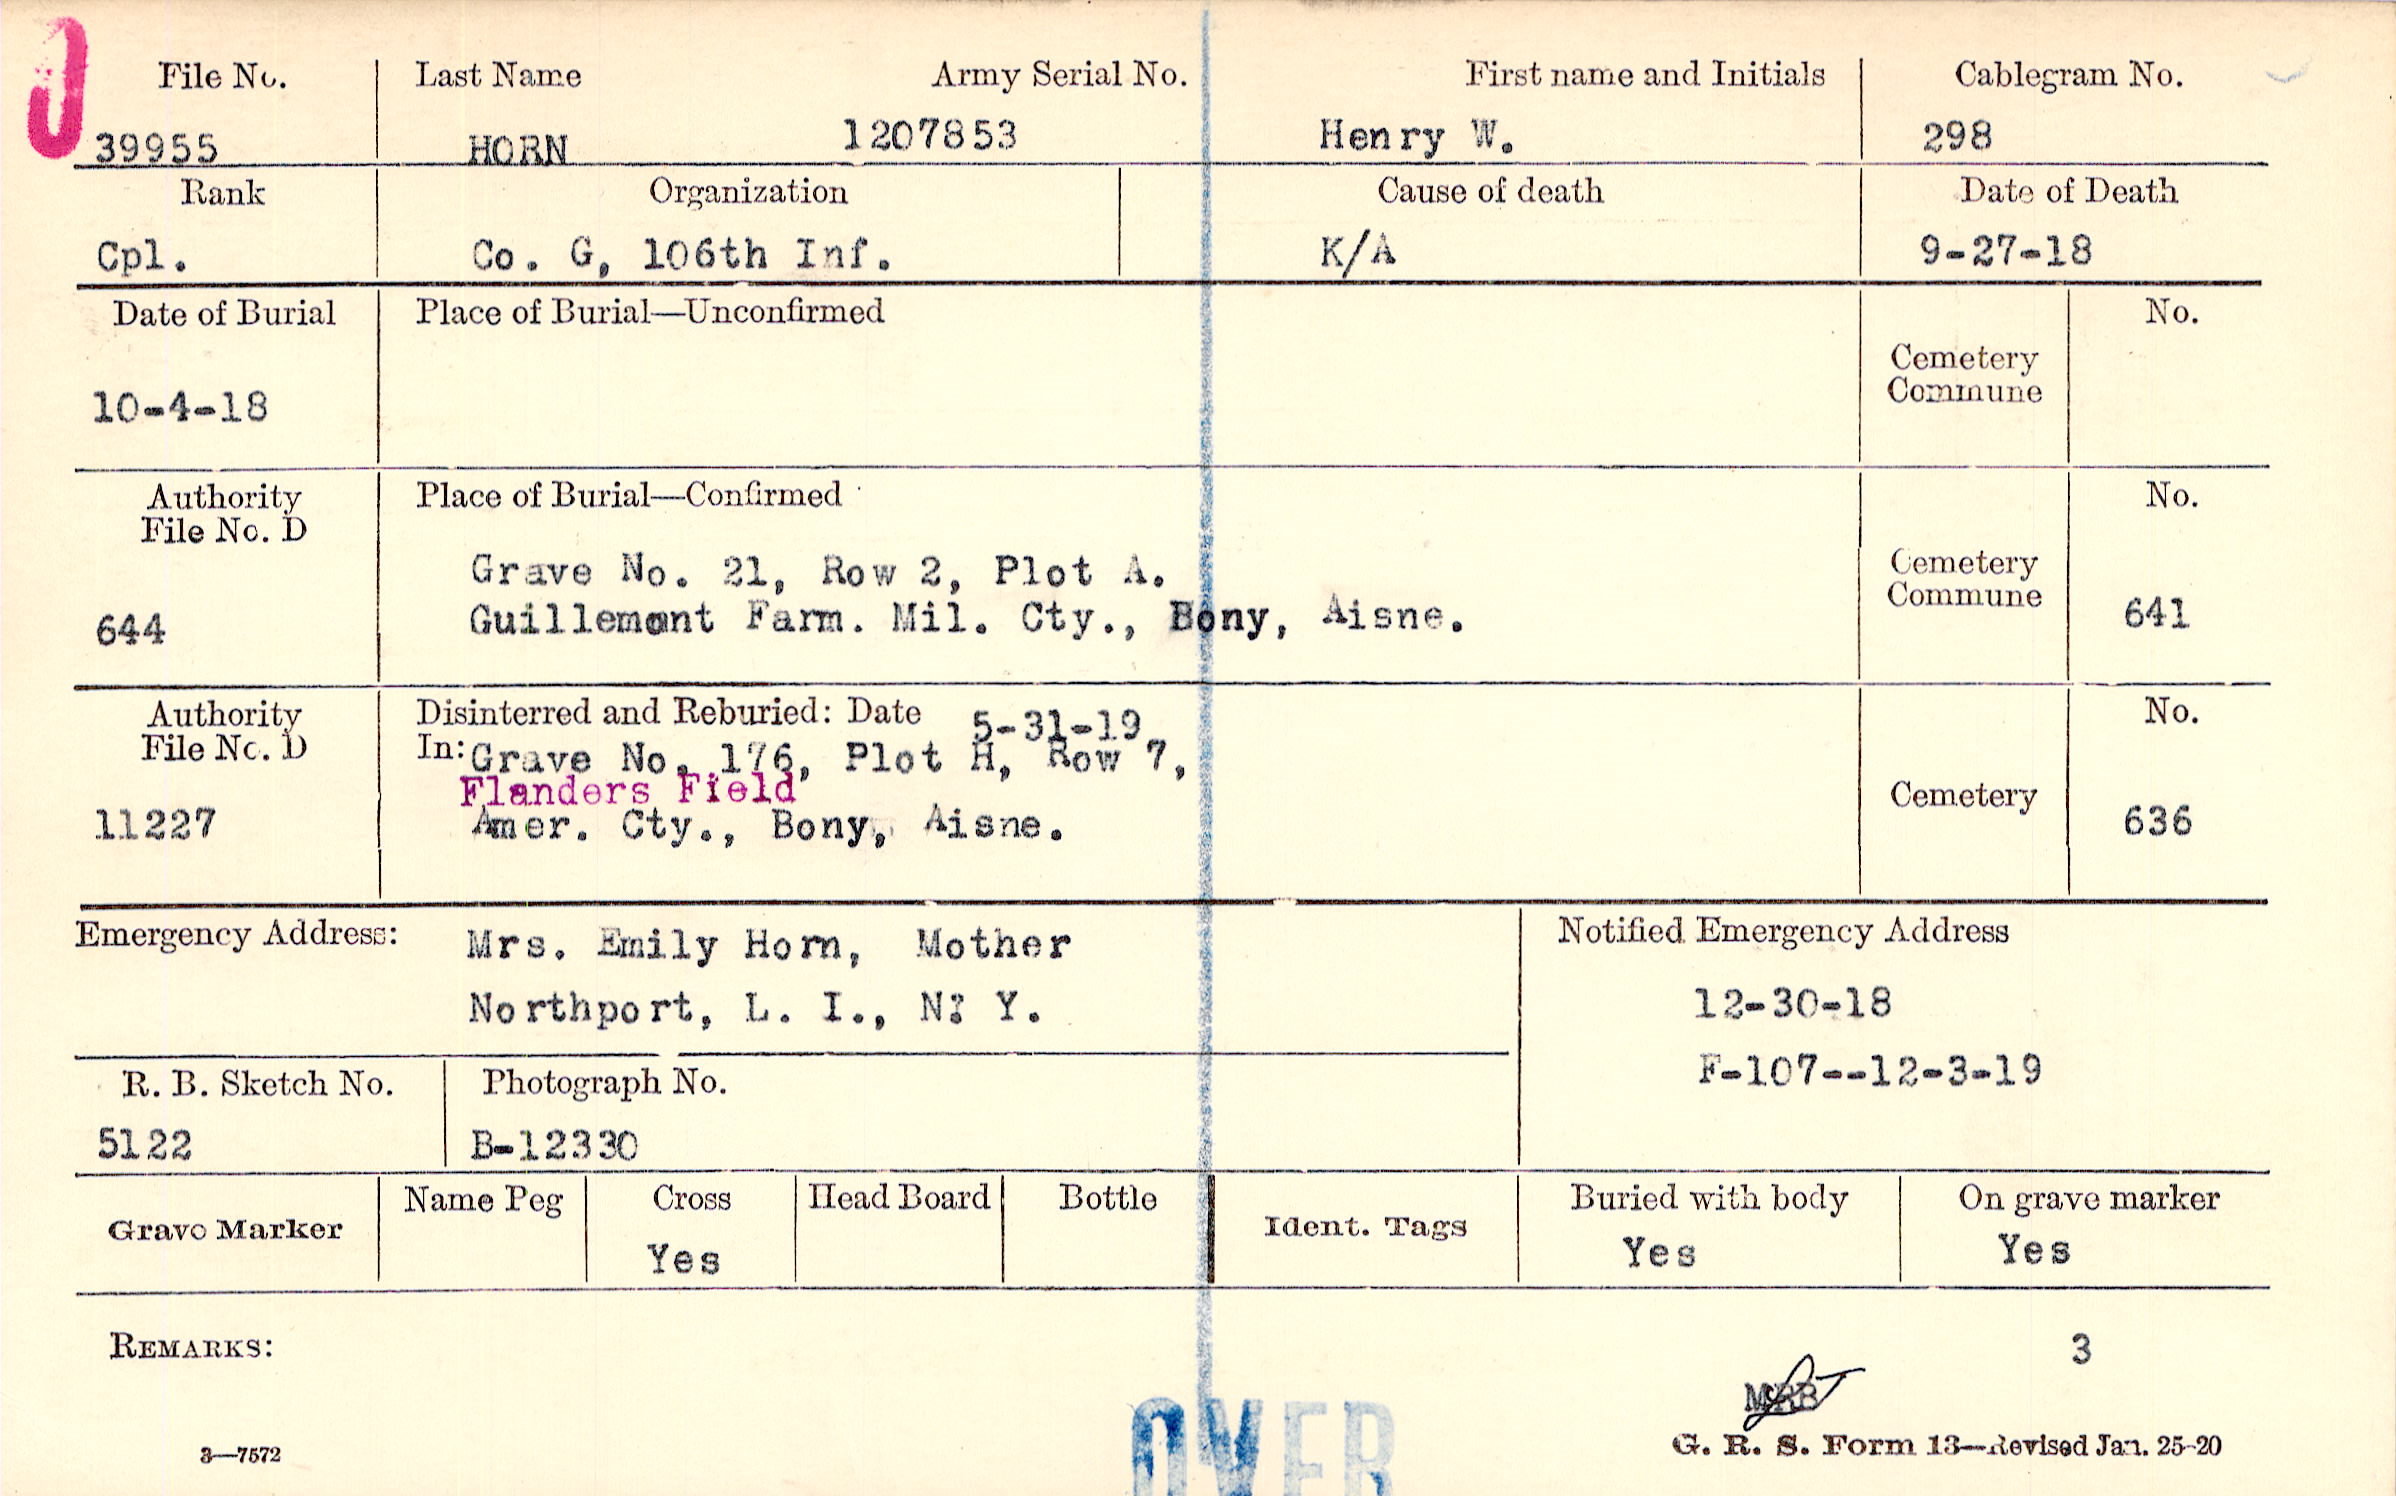 File No. Last Name Army Serial No. First name and Initials Cablegram No.
39955 HORN 1207853 Henry W. 298
Rank Organization Cause of death Date of Death
Cpl. Co. G, 106th Inf. K/A 9-27-18
Date of Burial Place of Burial—Unconfirmed No.
Cemetery
Commune
10-4-18
Authority Place of Burial—Confirmed No.
File No. D
Grave No. 21, Row 2, Plot A. Cemetery
644 Guillemont Farm. Mil. Cty., Bony, Aisne. Commune 641
Authority Disinterred and Reburied: Date 5-31-19 No.
File No. D In: Grave No. 176, Plot H, Row 7,
Flanders Field Cemetery
11227 Amer. Cty., Bony, Aisne. 636
Emergency Address: Mrs. Emily Horn, Mother Notified Emergency Address
Northport, L. I., N. Y. 12-30-18
F-107--12-3-19
R. B. Sketch No. Photograph No.
5122 B-12330
Grave Marker Name Peg Cross Head Board Bottle Ident. Tags Buried with body On grave marker
Yes Yes Yes
REMARKS: 3
MRB
3—7572 OVER G. R. S. Form 13—Revised Jan. 25-20